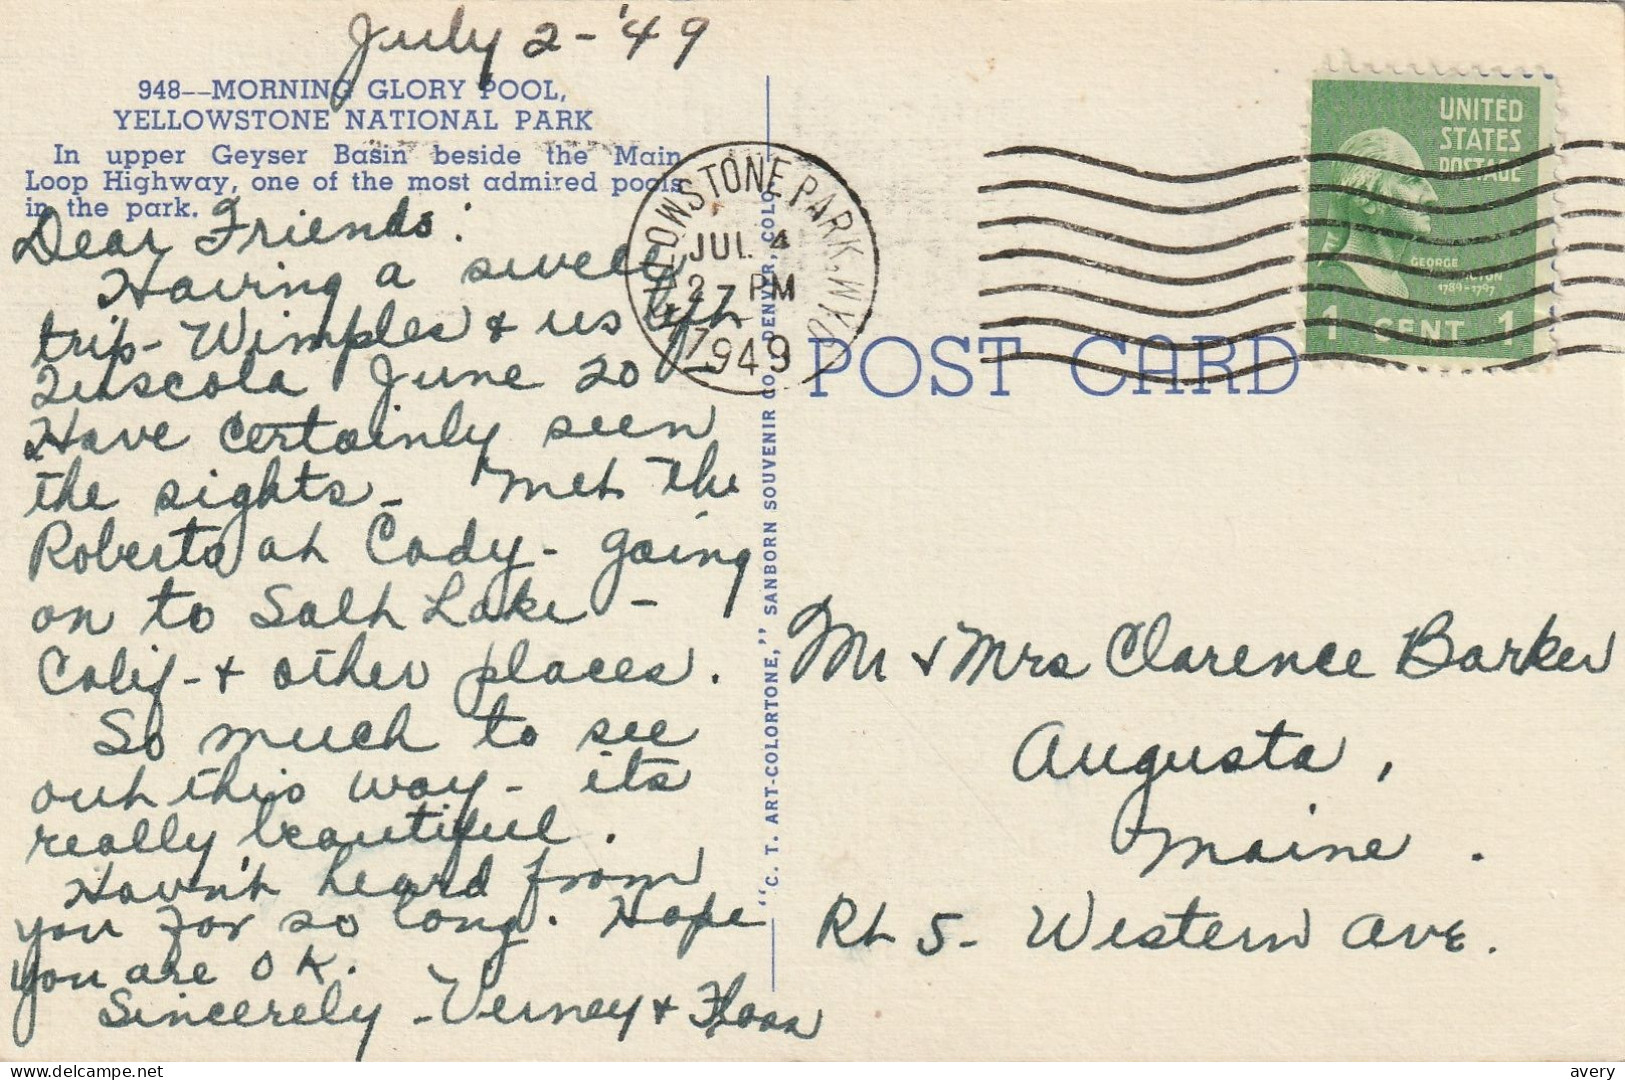 July 2-'49
948--MORNING GLORY POOL,
YELLOWSTONE NATIONAL PARK
In upper Geyser Basin beside the Main
Loop Highway, one of the most admired pools
in the park.
Dear Friends:
Having a swell
trip- Wimples & us left
Tuscola June 20 -
Have certainly seen
the sights - Met the
Roberts at Cody - going
on to Salt Lake -
Calif - & other places.
So much to see
out this way - its
really beautiful.
Havn't heard from
you for so long. Hope
you are OK.
Sincerely - Verney &
"C. T. ART-COLORTONE," SANBORN SOUVENIR CO., DENVER, COLO.
YELLOWSTONE PARK, WYO.
JUL 4
2 PM
1949
UNITED
STATES
POSTAGE
GEORGE
WASHINGTON
1789-1797
1 CENT 1
POST CARD
Mr & Mrs Clarence Barker
Augusta,
Maine.
Rt 5- Western Ave.
delcampe.net
avery